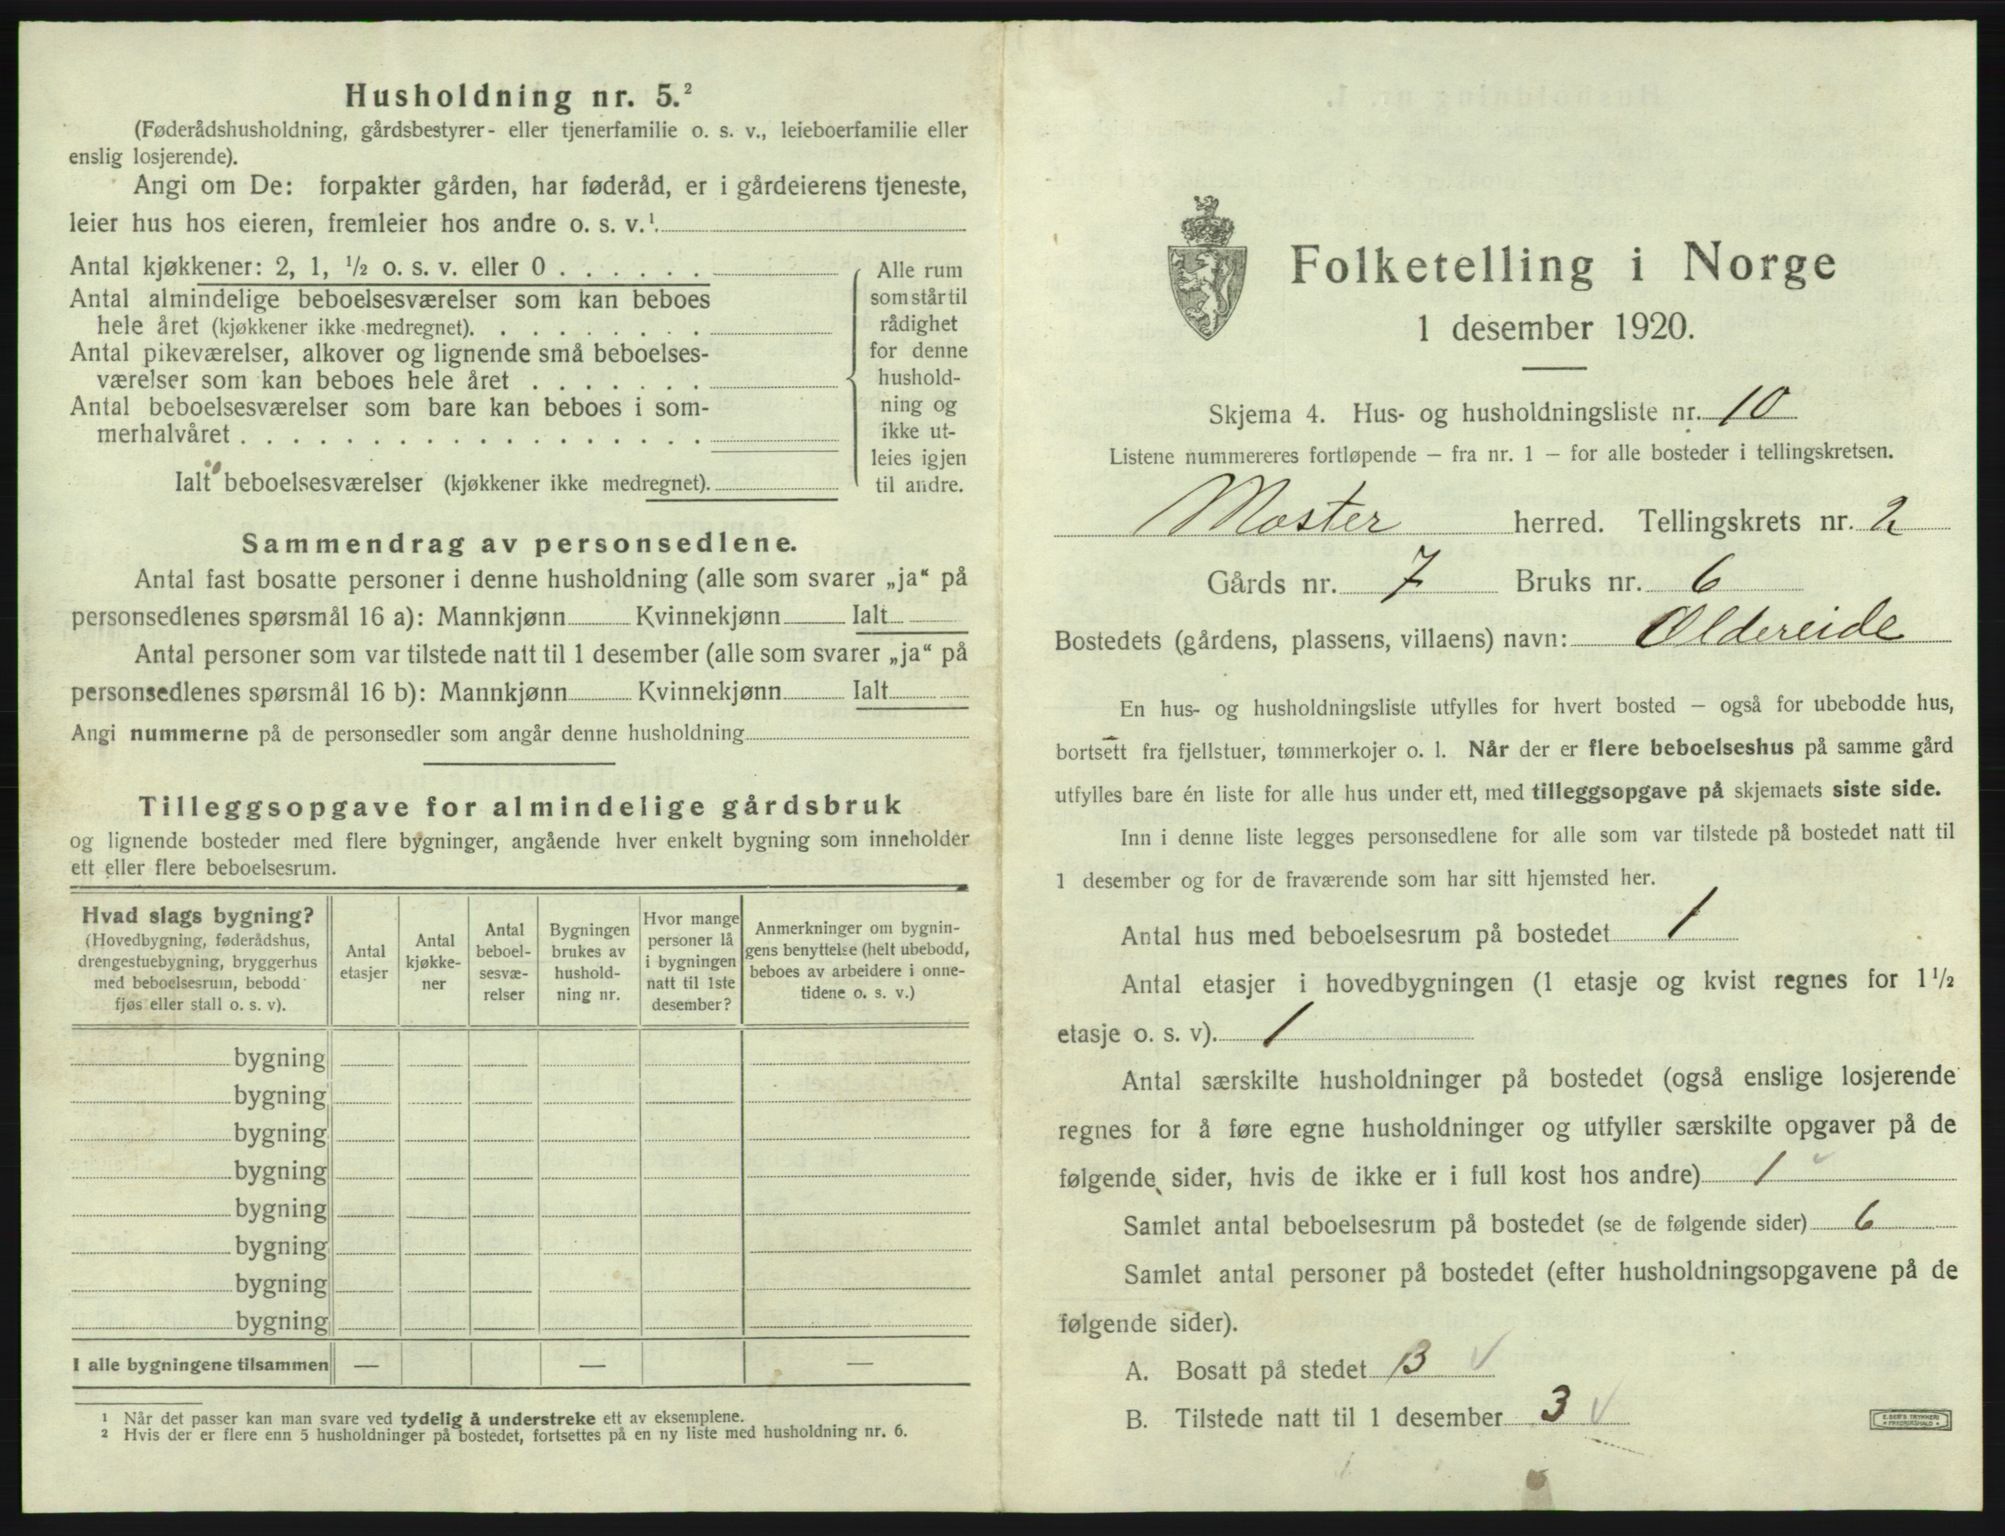 Husholdning nr. 5.²
(Føderådshusholdning, gårdsbestyrer- eller tjenerfamilie o. s. v., leieboerfamilie eller
enslig losjerende).
Angi om De: forpakter gården, har føderåd, er i gårdeierens tjeneste,
leier hus hos eieren, fremleier hos andre o. s. v.¹
Antal kjøkkener: 2, 1, ½ o. s. v. eller 0 . . . . . .
Antal almindelige beboelsesværelser som kan beboes
hele året (kjøkkener ikke medregnet). . . . . . . . .
Antal pikeværelser, alkover og lignende små beboelses-
værelser som kan beboes hele året . . . . . . .
Antal beboelsesværelser som bare kan beboes i som-
merhalvåret . . . . . . . . . . . . . . . . . .
Ialt beboelsesværelser (kjøkkener ikke medregnet).
Alle rum
som står til
rådighet
for denne
hushold-
ning og
ikke ut-
leies igjen
til andre.
Sammendrag av personsedlene.
Antal fast bosatte personer i denne husholdning (alle som svarer „ja“ på
personsedlenes spørsmål 16 a): Mannkjønn Kvinnekjønn Ialt
Antal personer som var tilstede natt til 1 desember (alle som svarer „ja“ på
personsedlenes spørsmål 16 b): Mannkjønn Kvinnekjønn Ialt
Angi nummerne på de personsedler som angår denne husholdning
Tilleggsopgave for almindelige gårdsbruk
og lignende bosteder med flere bygninger, angående hver enkelt bygning som inneholder
ett eller flere beboelsesrum.
Hvad slags bygning?
(Hovedbygning, føderådshus,
drengestuebygning, bryggerhus
med beboelsesrum, bebodd
fjøs eller stall o. s. v).
Antal
etasjer
Antal
kjøkke-
ner
Antal
beboel-
sesvæ-
relser
Bygningen
brukes av
hushold-
ning nr.
Hvor mange
personer lå
i bygningen
natt til 1ste
desember?
Anmerkninger om bygnin-
gens benyttelse (helt ubebodd,
beboes av arbeidere i onne-
tidene o. s. v.)
bygning
bygning
bygning
bygning
bygning
bygning
bygning
bygning
I alle bygningene tilsammen — — —
1 Når det passer kan man svare ved tydelig å understreke ett av eksemplene.
2 Hvis der er flere enn 5 husholdninger på bostedet, fortsettes på en ny liste med husholdning nr. 6.
Folketelling i Norge
1 desember 1920.
Skjema 4. Hus- og husholdningsliste nr. 10
Listene nummereres fortløpende – fra nr. 1 – for alle bosteder i tellingskretsen.
Moster herred. Tellingskrets nr. 2
Gårds nr. 7 Bruks nr. 6
Bostedets (gårdens, plassens, villaens) navn: Oldereide
En hus- og husholdningsliste utfylles for hvert bosted – også for ubebodde hus,
bortsett fra fjellstuer, tømmerkojer o. l. Når der er flere beboelseshus på samme gård
utfylles bare én liste for alle hus under ett, med tilleggsopgave på skjemaets siste side.
Inn i denne liste legges personsedlene for alle som var tilstede på bostedet natt til
1 desember og for de fraværende som har sitt hjemsted her.
Antal hus med beboelsesrum på bostedet 1
Antal etasjer i hovedbygningen (1 etasje og kvist regnes for 1½
etasje o. s. v). 1
Antal særskilte husholdninger på bostedet (også enslige losjerende
regnes for å føre egne husholdninger og utfyller særskilte opgaver på de
følgende sider, hvis de ikke er i full kost hos andre) 1
Samlet antal beboelsesrum på bostedet (se de følgende sider) 6
Samlet antal personer på bostedet (efter husholdningsopgavene på de
følgende sider).
A. Bosatt på stedet 3
B. Tilstede natt til 1 desember 3
E. SEM'S TRYKKERI
FREDRIKSHALD